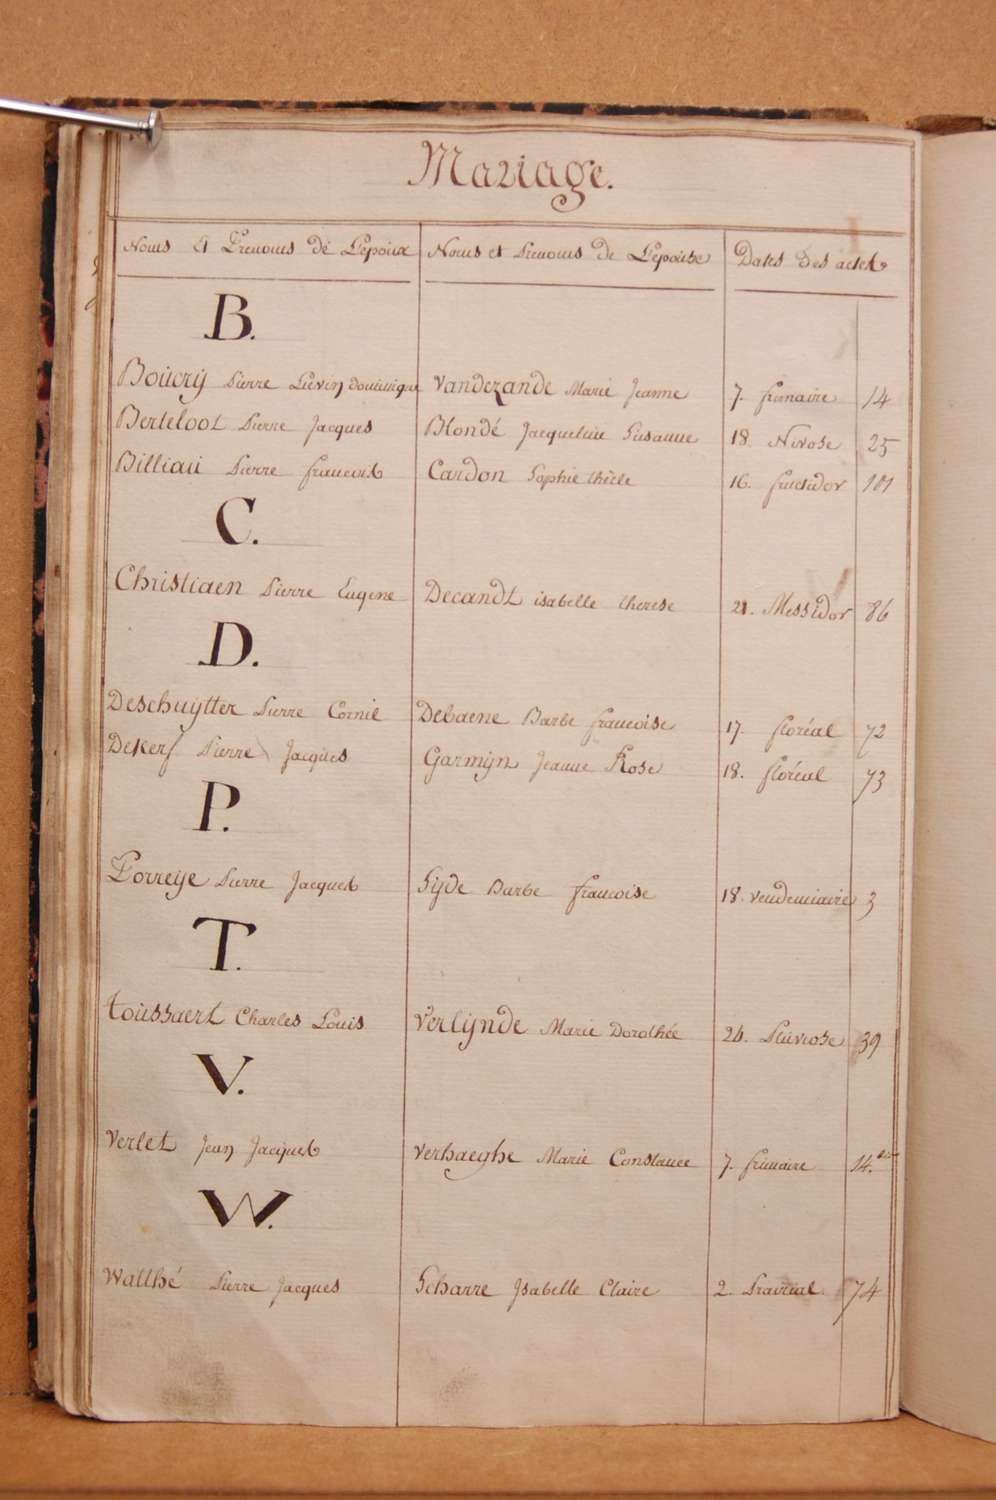 Mariage.
Noms et Prenoms de L'epoux Noms et Prenoms de L'epouse Dates des actes
B.
Boùcrÿ Pierre Lievin dominique Vandezande Marie Jeanne 7. frimaire 14
Berteloot Pierre Jacques Blondé Jacqueline Susanne 18. Nivose 25
Billiaù Pierre francois Cardon Sophie thèle 16. fructidor 101
C.
Christiaen Pierre Eugene Decandt isabelle therese 21. Messidor 86
D.
Deschuÿtter Pierre Cornil Debaene Barbe francoise 17. floréal 72
Pierre Jacques Garmÿn Jeanne Rose 18. floréal 73
P.
Porreÿe Pierre Jacques Sÿde Barbe francoise 18. vendemiaire 3
T.
toùssaert Charles Louis Verlÿnde Marie Dorothée 24. Pluviose 39
V.
Verlet Jean Jacques Verhaeghe Marie Constance 7. frimaire 14.
W.
Walthé Pierre Jacques Scharre Isabelle Claire 2. Prairial 74